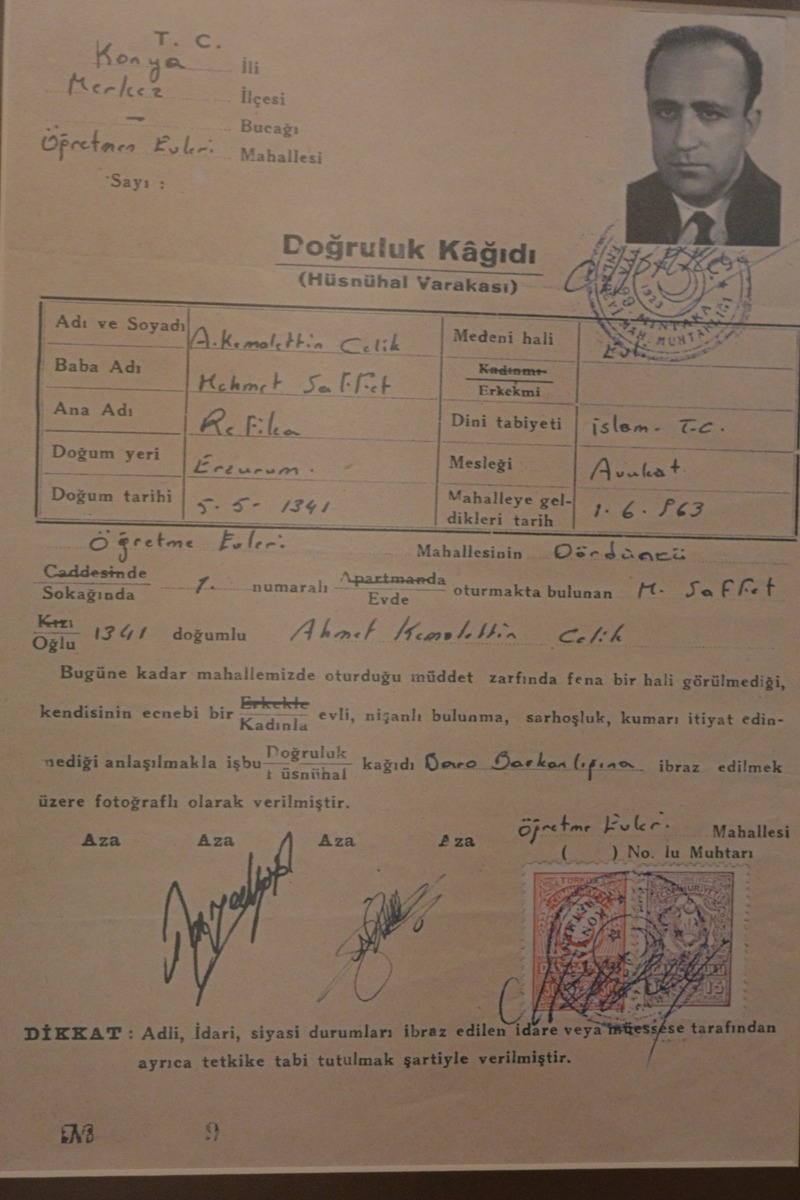 T. C.
Konya İli
Merkez İlçesi
— Bucağı
Öğretmen Evleri Mahallesi
Sayı :
Doğruluk Kâğıdı
(Hüsnühal Varakası)
Adı ve Soyadı A. Kemalettin Çelik Medeni hali Evli
Baba Adı Mehmet Saffet Kadınmı Erkekmi
Ana Adı Refika Dini tabiyeti İslam - T.C.
Doğum yeri Erzurum. Mesleği Avukat
Doğum tarihi 5-5-1341 Mahalleye gel-
dikleri tarih 1.6.963
Öğretme Evleri Mahallesinin Dördüncü
Caddesinde
Sokağında 7. numaralı Apartmanda Evde oturmakta bulunan M. Saffet
Kızı
Oğlu 1341 doğumlu Ahmet Kemalettin Çelik
Bugüne kadar mahallemizde oturduğu müddet zarfında fena bir hali görülmediği,
kendisinin ecnebi bir Erkekle Kadınla evli, nişanlı bulunma, sarhoşluk, kumarı itiyat edin-
nediği anlaşılmakla işbu Doğruluk üsnühal kağıdı Baro Başkanlığına ibraz edilmek
üzere fotoğraflı olarak verilmiştir.
Aza Aza Aza Aza
Öğretme Evleri Mahallesi
( ) No. lu Muhtarı
DİKKAT : Adli, İdari, siyasi durumları ibraz edilen idare veya müessese tarafından
ayrıca tetkike tabi tutulmak şartiyle verilmiştir.
9